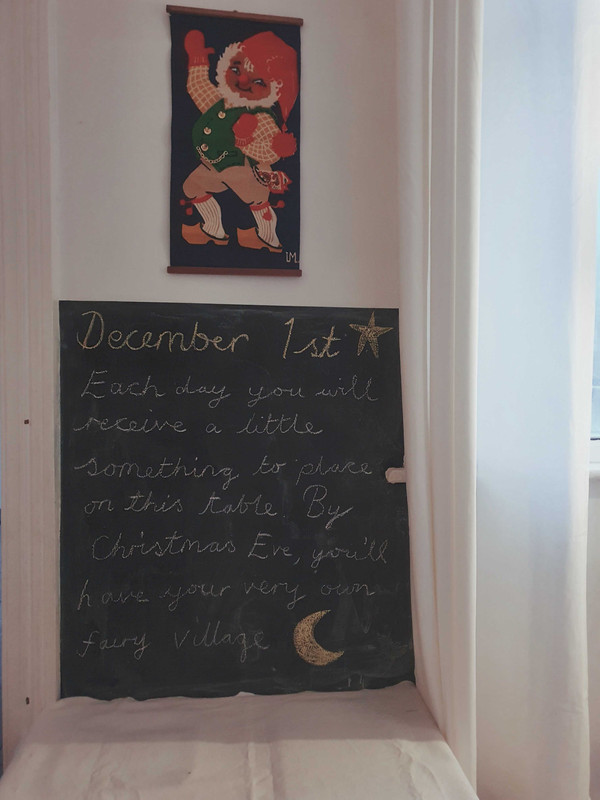 LM
December 1st
Each day you will
receive a little
something to place
on this table. By
Christmas Eve, you'll
have your very own
fairy village